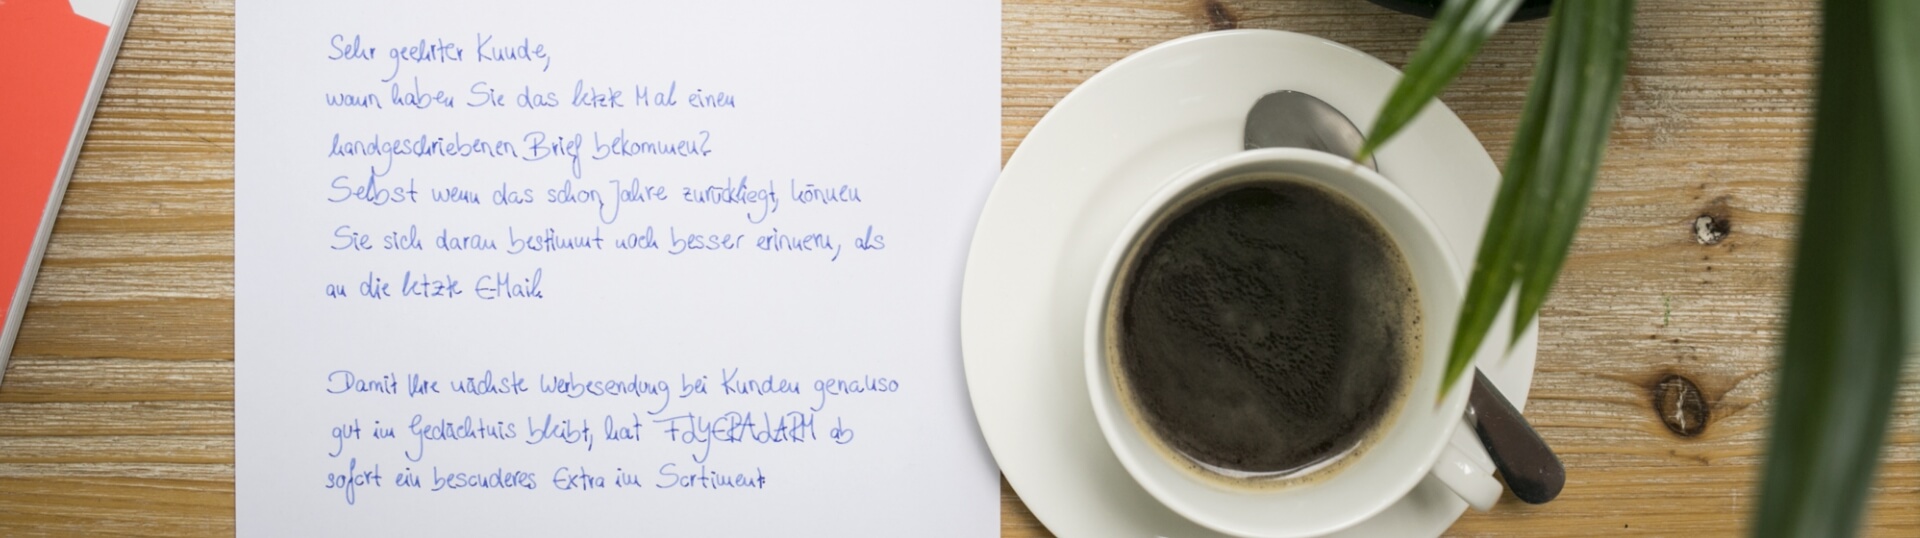 Sehr geehrter Kunde,
wann haben Sie das letzte Mal einen
handgeschriebenen Brief bekommen?
Selbst wenn das schon Jahre zurückliegt, können
Sie sich daran bestimmt noch besser erinnern, als
an die letzte E-Mail.
Damit Ihre nächste Werbesendung bei Kunden genauso
gut im Gedächtnis bleibt, hat FLYERALARM ab
sofort ein besonderes Extra im Sortiment